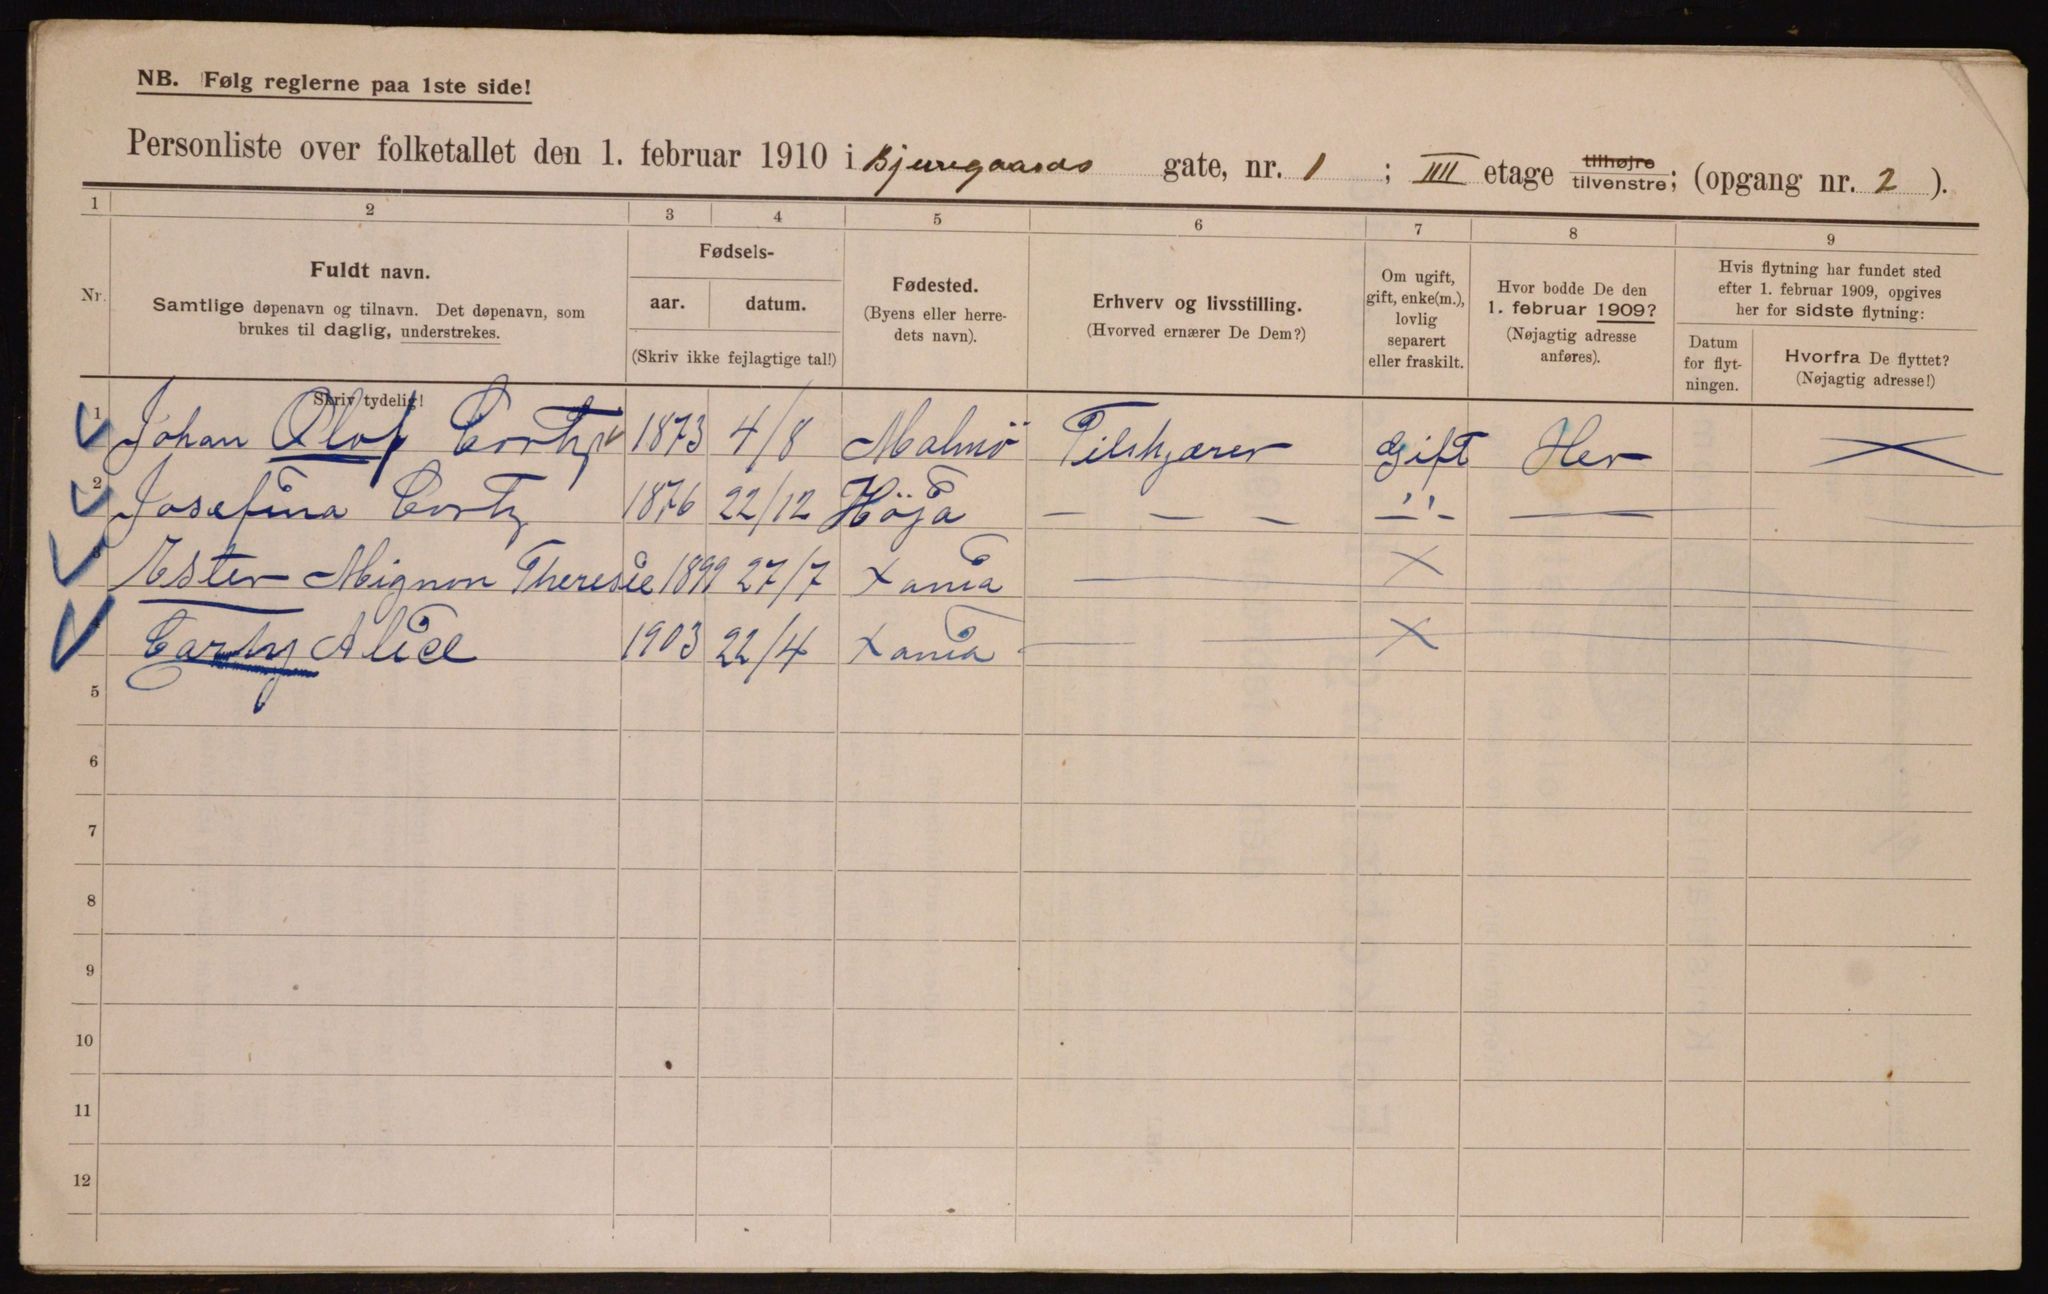 NB. Følg reglerne paa 1ste side!
Personliste over folketallet den 1. februar 1910 i Bjerregaards gate, nr. 1 ; IIII etage tilhøjre tilvenstre; (opgang nr. 2 ).
1 2 3 4 5 6 7 8 9
Nr.
Fuldt navn.
Samtlige døpenavn og tilnavn. Det døpenavn, som
brukes til daglig, understrekes.
Skriv tydelig!
Fødsels-
aar. datum.
(Skriv ikke fejlagtige tal!)
Fødested.
(Byens eller herre-
dets navn).
Erhverv og livsstilling.
(Hvorved ernærer De Dem?)
Om ugift,
gift, enke(m.),
lovlig
separert
eller fraskilt.
Hvor bodde De den
1. februar 1909?
(Nøjagtig adresse
anføres).
Hvis flytning har fundet sted
efter 1. februar 1909, opgives
her for sidste flytning:
Datum
for flyt-
ningen.
Hvorfra De flyttet?
(Nøjagtig adresse!)
1 Johan Olof Cortz 1873 4/8 Malmö Tilskjærer Gift Her
2 Josefina Cortz 1876 22/12 Höja — — — —"— —
3 Ester Mignon Theresie 1899 27/7 Xania — X
Carty Alice 1903 22/4 Xania — X
5
6
7
8
9
10
11
12